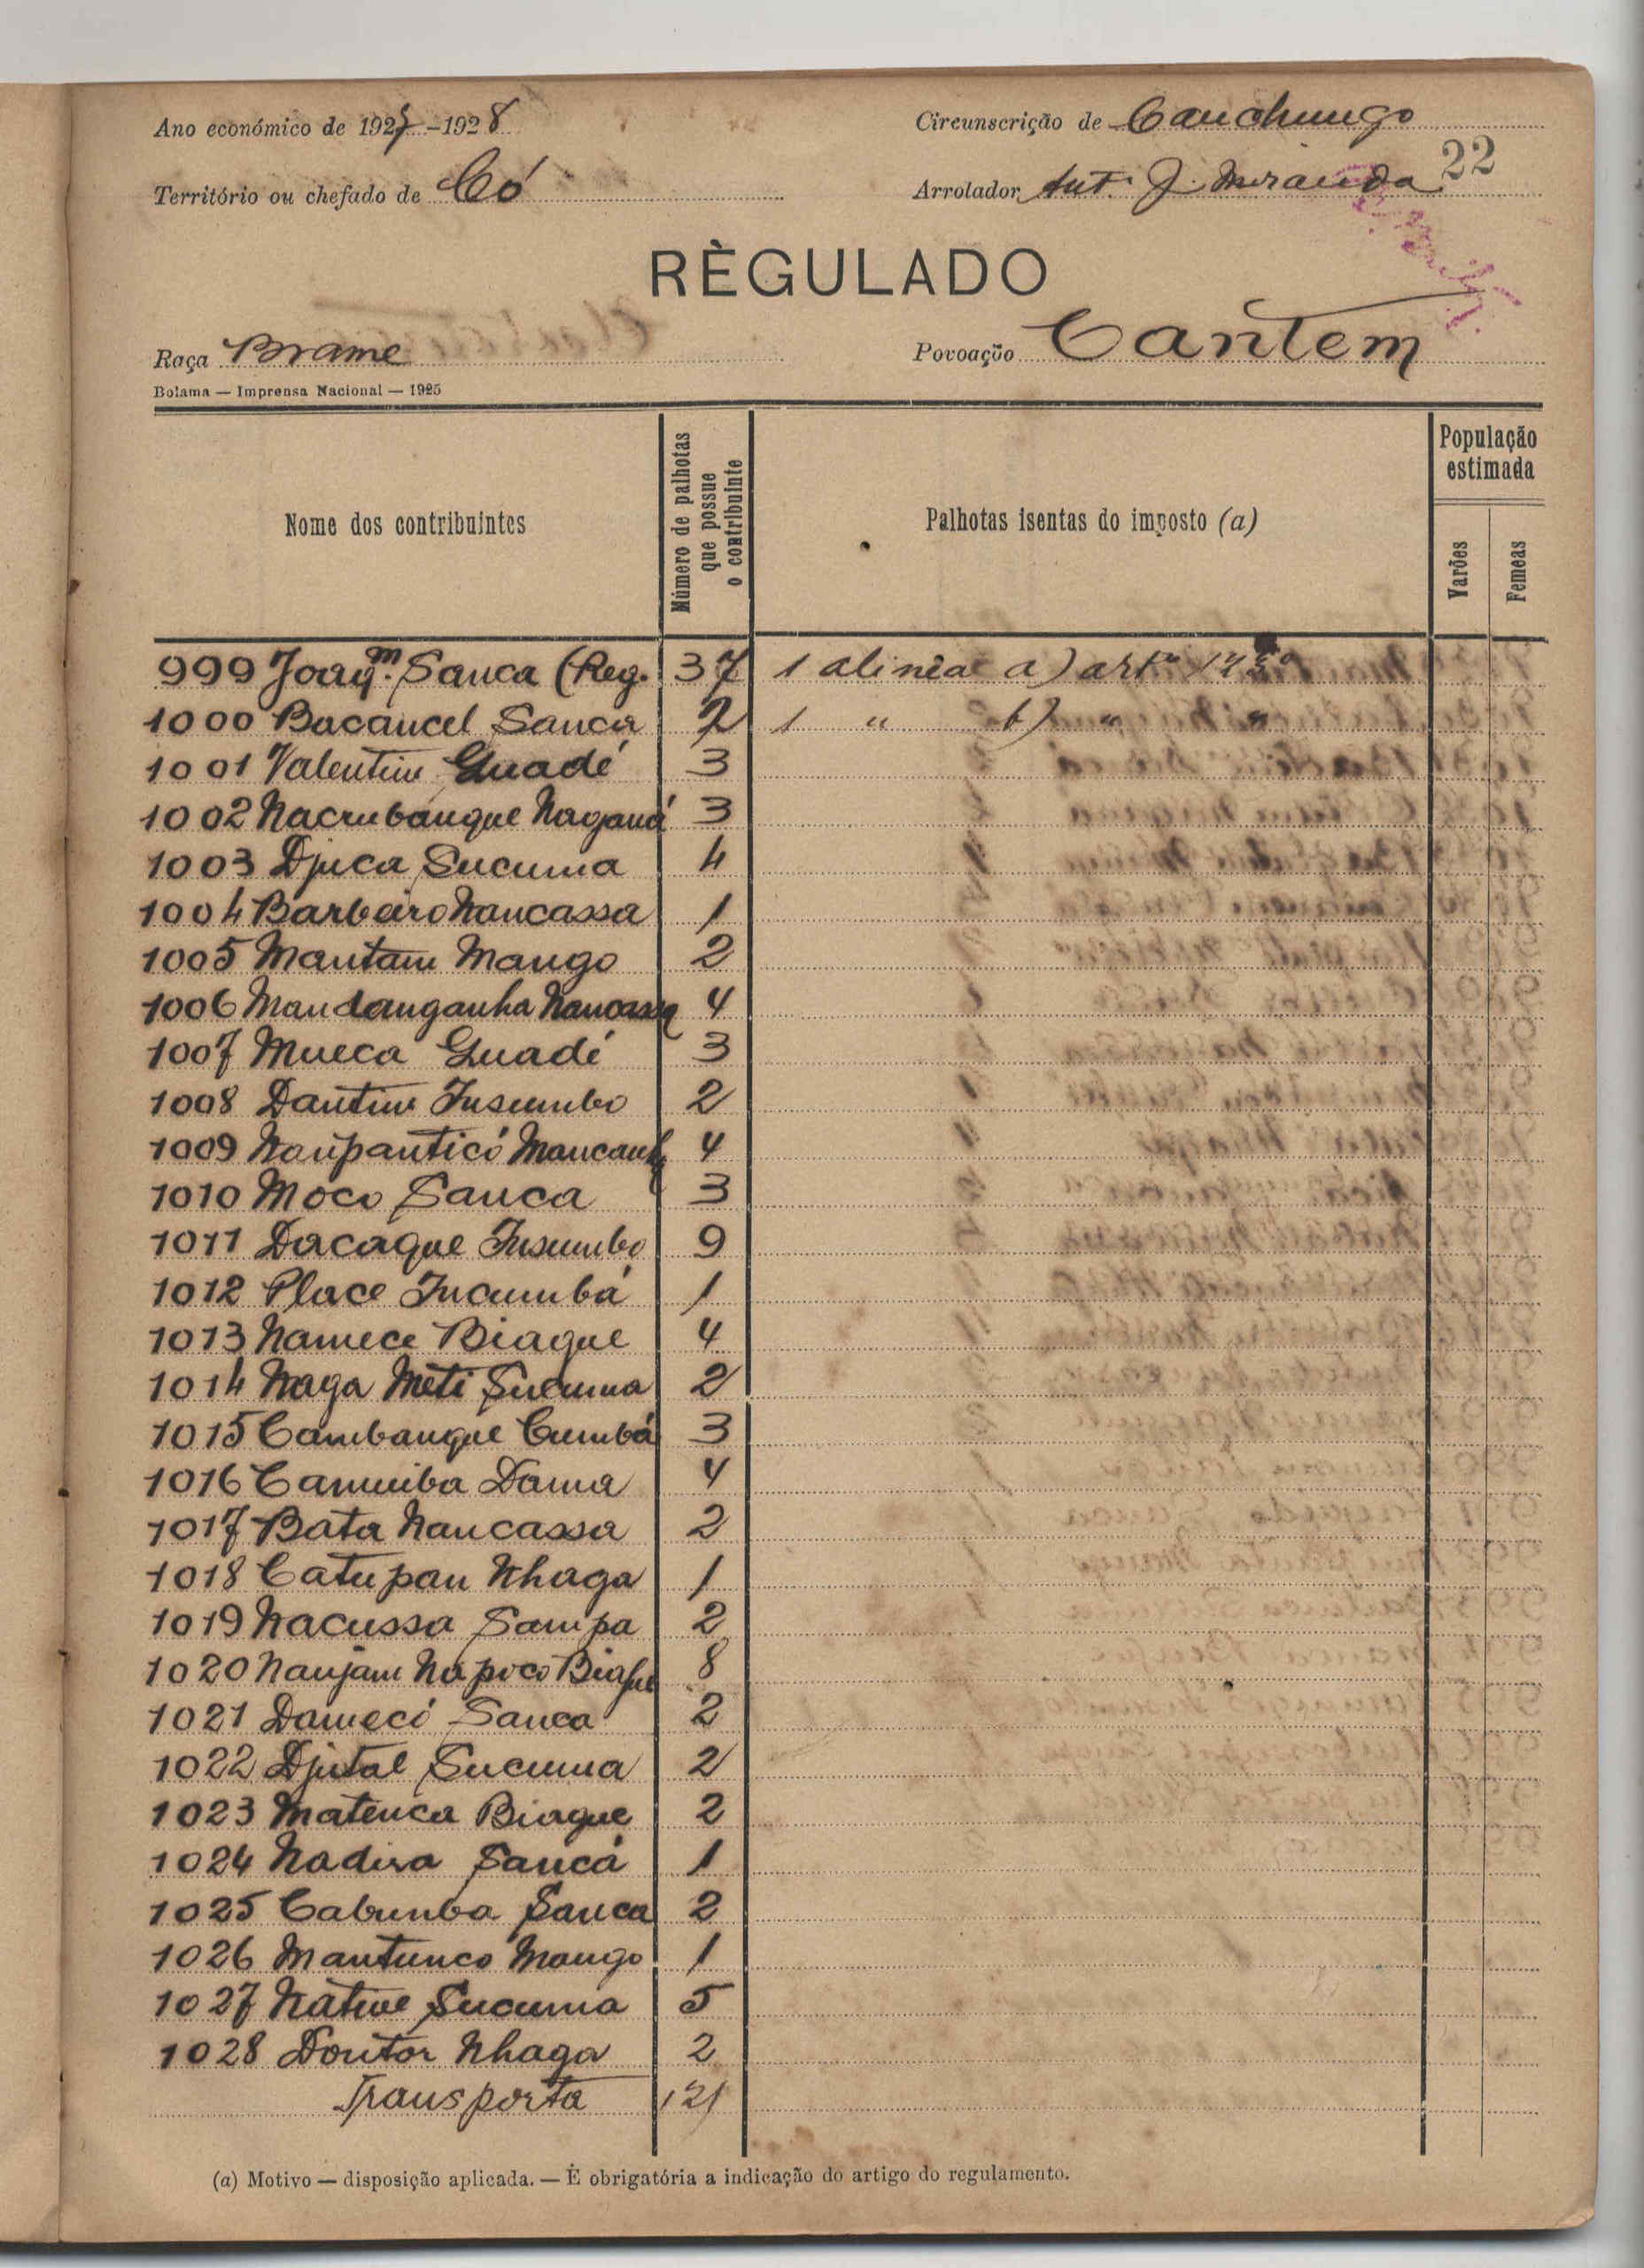 Ano económico de 1927-1928
Circunscrição de Canchungo
22
Território ou chefado de Có
Arrolador Ant. J. Miranda
RÈGULADO
Raça Brame
Povoação Cantem
Bolama — Imprensa Nacional — 1925
Nome dos contribuintes
Número de palhotas que possue o contribuinte
Palhotas isentas do imposto (a)
População estimada
Varões
Femeas
999 Joaqm. Sanca (Reg. 37 1 alinêa a) artº
1000 Bacancel Sanca 2 1 " b) " "
1001 Valentim Guadé 3
1002 Nacrubanque Naganá 3
1003 Djuca Sucuma 4
1004 Barbeiro Nancassa 1
1005 Mantam Mango 2
1006 Mandanganha Nancassa 4
1007 Mueca Guadé 3
1008 Dantim Insumbo 2
1009 Naupanticó 4
1010 Moco Sanca 3
1011 Dacaque Insumbo 9
1012 Place Incumbá 1
1013 Namece Biague 4
1014 Naga Meti Sucuma 2
1015 Cambanque Cumbá 3
1016 Camuiba Dama 4
1017 Bata Nancassa 2
1018 Catupan Nhaga 1
1019 Nacussa Sampa 2
1020 Nanjam Napoco Biague 8
1021 Damecó Sanca 2
1022 Djutal Sucuma 2
1023 Matenca Biague 2
1024 Nadira Sancá 1
1025 Cabumba Sanca 2
1026 Mantunco Mango 1
1027 Natue Sucuma 5
1028 Doutor Nhaga 2
Transporta 121
(a) Motivo — disposição aplicada. — É obrigatória a indicação do artigo do regulamento.